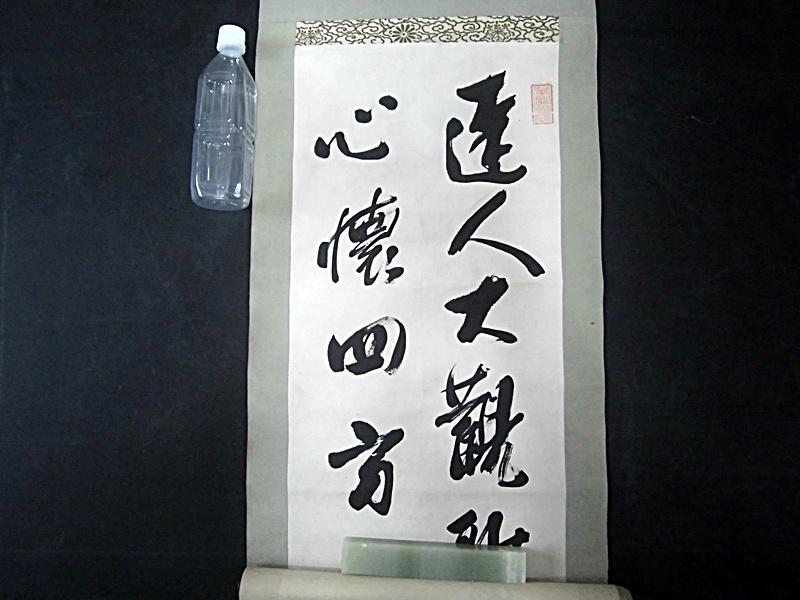 達人大觀
心懷四方